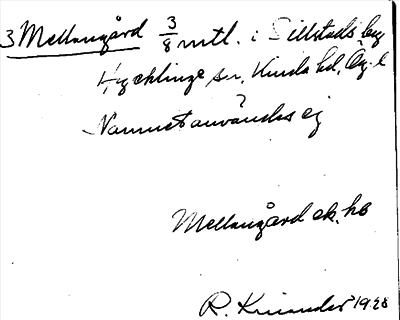 3 Mellangård 3/8 mtl. i Sillstads by
Hycklinge sn, Kinda hd, Ög. l
Namnet användes ej
?
Mellangård ek. kb
R. Kinander 1928